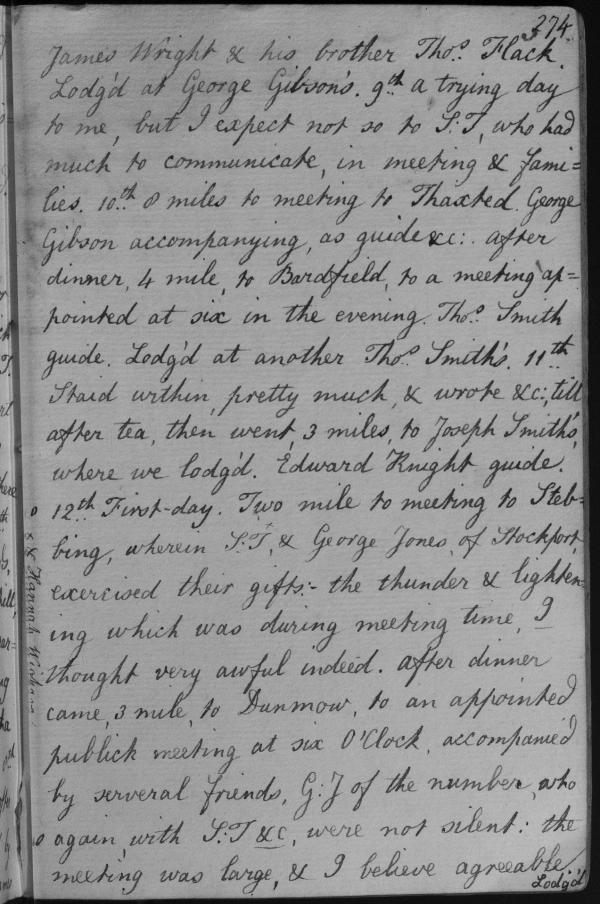 374.
James Wright & his brother Thos. Flack.
Lodg'd at George Gibson's. 9th. a trying day
to me, but I expect not so to S:T, who had
much to communicate, in meeting & fami=
lies. 10th. 8 miles to meeting to Thaxted. George
Gibson accompanying, as guide &c:. after
dinner, 4 mile, to Bardfield, to a meeting ap=
pointed at six in the evening. Thos. Smith
guide. Lodg'd at another Thos. Smith's. 11th.
Staid within, pretty much, & wrote &c:, till
after tea, then went, 3 miles, to Joseph Smith's,
where we lodg'd. Edward Knight guide.
12th. First-day. Two mile to meeting to Steb=
bing, wherein S:T, & George Jones, of Stockport,
exercised their gifts:- the thunder & lighten=
ing which was during meeting time, I
thought very awful indeed. after dinner
came, 3 mile, to Dunmow, to an appointed
publick meeting at six O'Clock, accompanied
by serveral friends, G:J of the number, who
again, with S:T &c, were not silent: the
meeting was large, & I believe agreeable.
Lodg'd
& Hannah